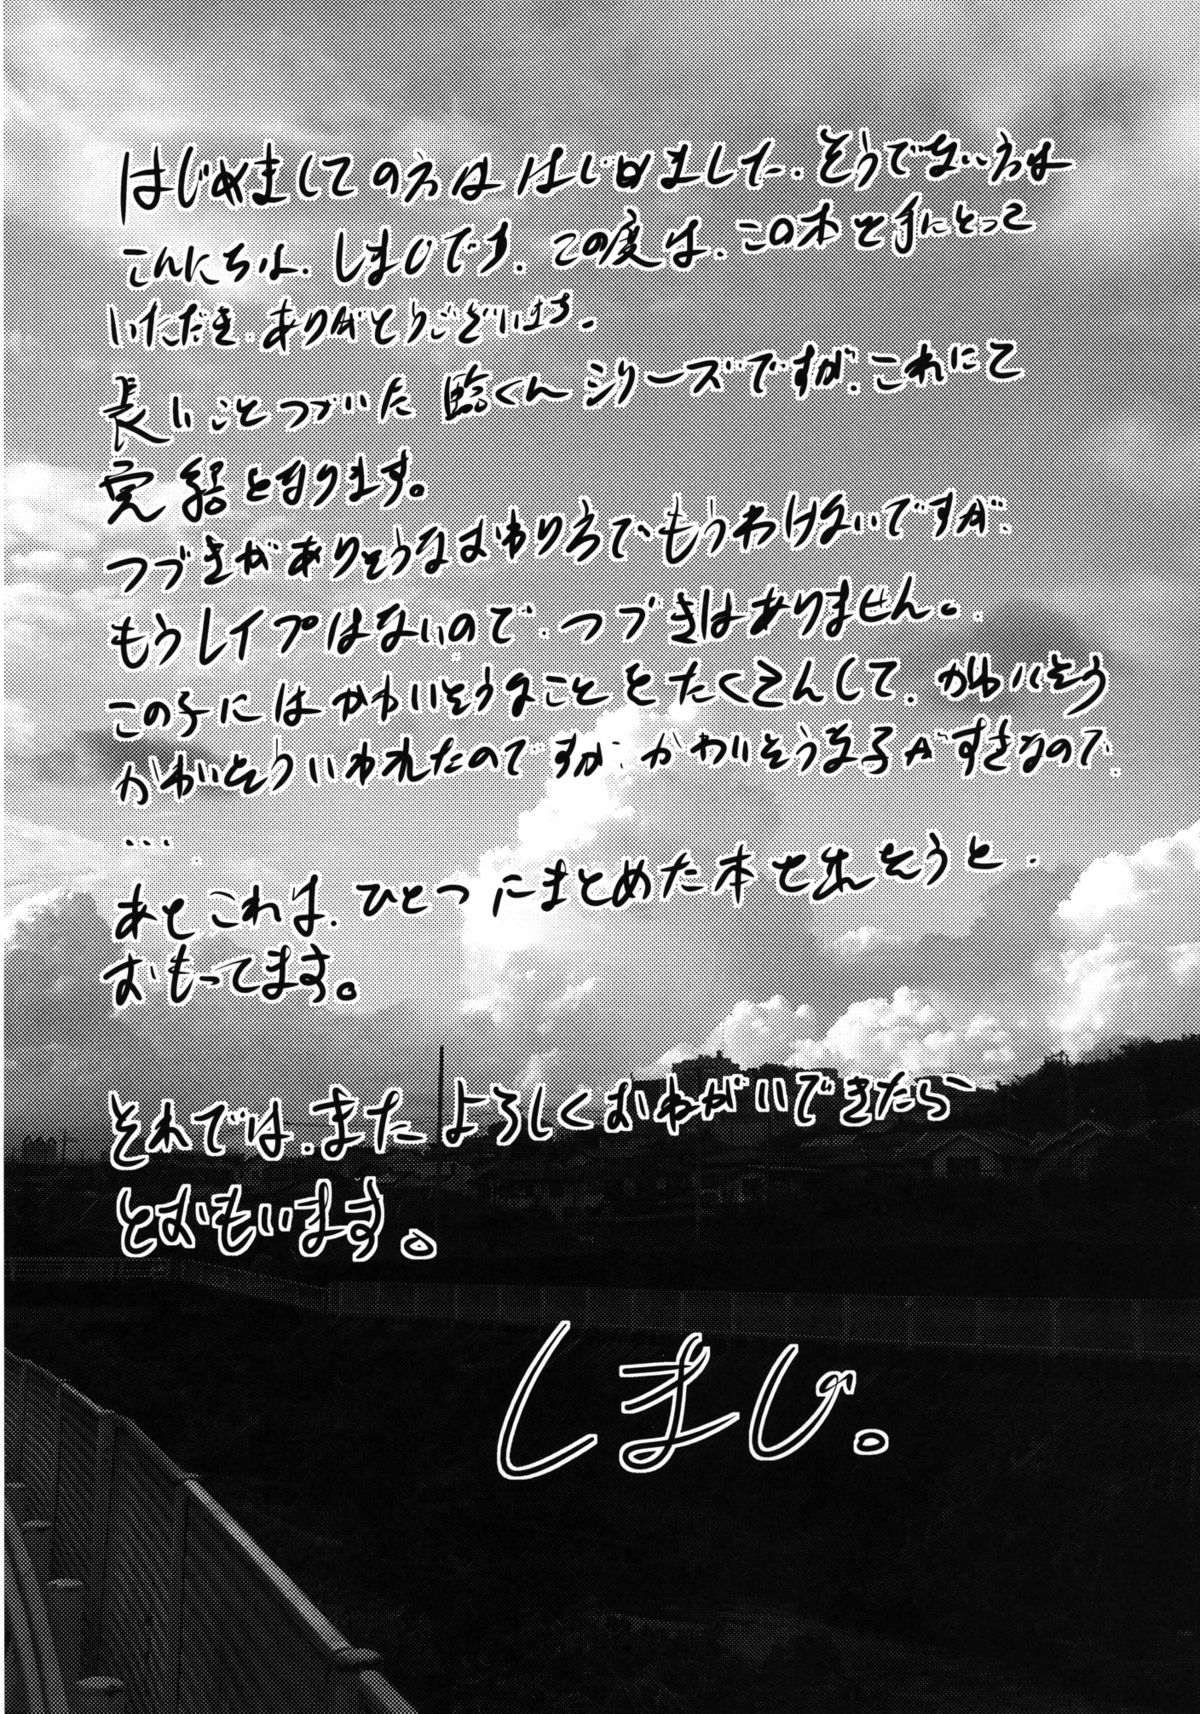 はじめましての方は はじめまして、そうでない方は
こんにちは、しまじです、この度は、この本を手にとって
いただき、ありがとうございます。
長いことつづいた 臨くんシリーズですが、これにて
完結となります。
つづきがありそうなおわり方でもうわけないですが、
もうレイプはないので、つづきはありません。
この子にはかわいそうなことをたくさんして、かわいそう
かわいそういわれたのですが、かわいそうな子がすきなので、
...
あとこれは、ひとつにまとめた本を出そうと、
おもってます。
それでは、またよろしくおねがいできたら
とおもいます。
しまじ。